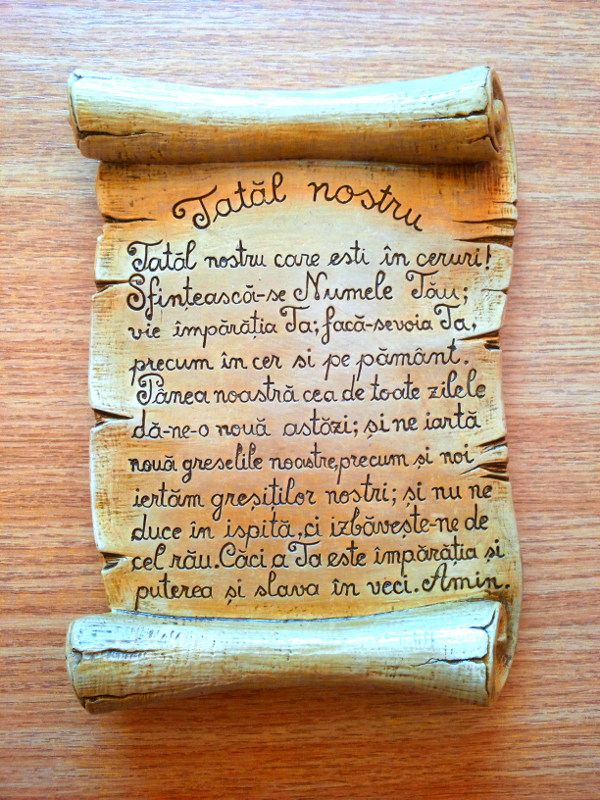 Tatăl nostru
Tatăl nostru care esti în ceruri!
Sfințească-se Numele Tău;
vie împărăția Ta; facă-sevoia Ta,
precum în cer si pe pământ.
Pânea noastră cea de toate zilele
dă-ne-o nouă astăzi; și ne iartă
nouă greselile noastre, precum și noi
iertăm greșiților nostri; si nu ne
duce în ispită, ci izbăvește-ne de
cel rău. Căci a Ta este împărăția si
puterea și slava în veci. Amin.